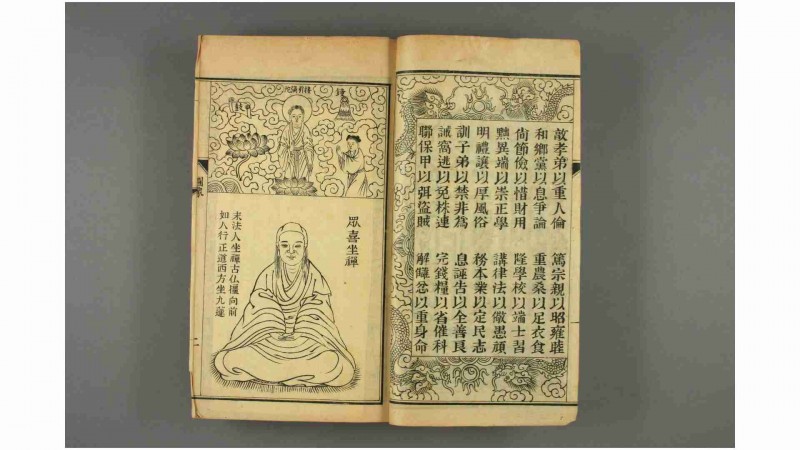 敦孝弟以重人倫 篤宗親以昭雍睦
和鄉黨以息爭論 重農桑以足衣食
尚節儉以惜財用 隆學校以端士習
黜異端以崇正學 講律法以儆愚頑
明禮讓以厚風俗 務本業以定民志
訓子弟以禁非為 息誣告以全善良
誡窩逃以免株連 完錢糧以省催科
聯保甲以弭盜賊 解讎忿以重身命
鐘
接引彌陀
眾喜坐禪
末法人坐禪古仏擺向前
如人行正道西方坐九蓮
二